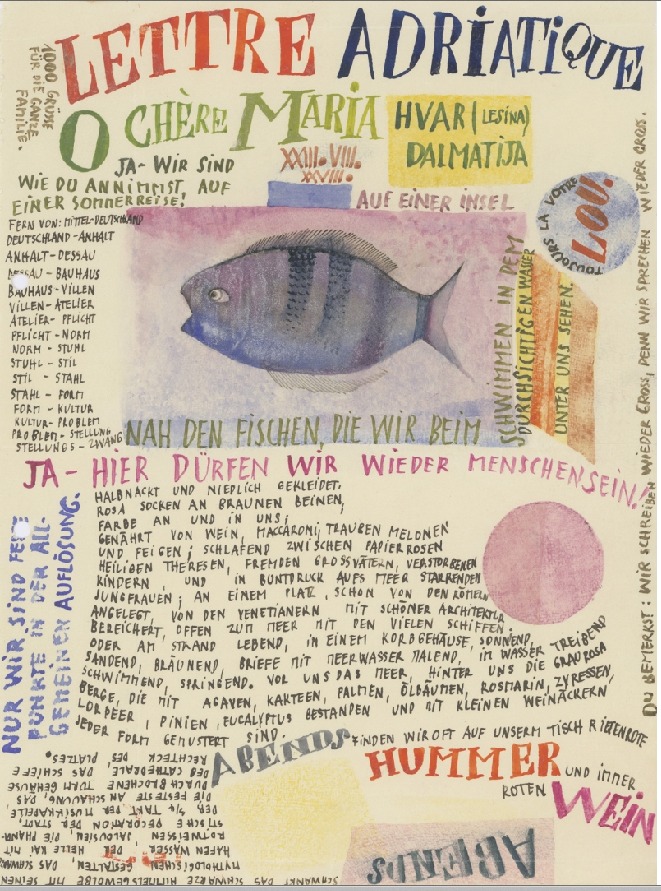 LETTRE ADRIATIQUE
1000 GRÜSSE
FÜR DIE GANZE
FAMILIE.
O CHÈRE MARIA
HVAR (LESINA)
DALMATIJA
XXIII. VIII.
XXVIII.
JA- WIR SIND
WIE DU ANNIMMST, AUF
EINER SOMMERREISE!
AUF EINER INSEL
TOUJOURS LA VOTRE
LOU.
FERN VON: MITTEL-DEUTSCHLAND
DEUTSCHLAND-ANHALT
ANHALT-DESSAU
DESSAU-BAUHAUS
BAUHAUS-VILLEN
VILLEN-ATELIER
ATELIER-PFLICHT
PFLICHT-NORM
NORM-STUHL
STUHL-STIL
STIL-STAHL
STAHL-FORM
FORM-KULTUR
KULTUR-PROBLEM
PROBLEM-STELLUNG
STELLUNGS-ZWANG
NAH DEN FISCHEN, DIE WIR BEIM
SCHWIMMEN IN DEM
DURCHSICHTIGEN WASSER
UNTER UNS SEHEN.
JA- HIER DÜRFEN WIR WIEDER MENSCHENSEIN!
HALBNACKT UND NIEDLICH GEKLEIDET.
ROSA SOCKEN AN BRAUNEN BEINEN,
FARBE AN UND IN UNS;
GENÄHRT VON WEIN, MACCARONI, TRAUBEN MELONEN
UND FEIGEN; SCHLAFEND ZWISCHEN PAPIERROSEN
HEILIGEN THERESEN, FREMDEN GROSSVÄTERN, VERSTORBENEN
KINDERN UND IN BUNTDRUCK AUFS MEER STARRENDEN
JUNGFRAUEN; AN EINEM PLATZ, SCHON VON DEN RÖMERN
ANGELEGT, VON DEN VENETIANERN MIT SCHÖNER ARCHITEKTUR
BEREICHERT, OFFEN ZUM MEER MIT DEN VIELEN SCHIFFEN.
ODER AM STRAND LEBEND, IN EINEM KORBGEHÄUSE, SONNEND,
SANDEND, BRÄUNEND, BRIEFE MIT MEERWASSER MALEND, IM WASSER TREIBEND
SCHWIMMEND, SPRINGEND. VOR UNS DAS MEER, HINTER UNS DIE GRAUROSA
BERGE, DIE MIT AGAVEN, KAKTEEN, PALMEN, ÖLBÄUMEN, ROSMARIN, ZYPRESSEN,
LORBEER, PINIEN, EUCALYPTUS BESTANDEN UND MIT KLEINEN WEINÄCKERN
JEDER FORM GEMUSTERT SIND.
NUR WIR SIND FESTE
PUNKTE IN DER ALL-
GEMEINEN AUFLÖSUNG.
DU BEMERKST: WIR SCHREIBEN WIEDER GROSS, DENN WIR SPRECHEN WIEDER GROSS.
ABENDS FINDEN WIR OFT AUF UNSERM TISCH RIESENROTE
HUMMER UND IMMER
ROTEN WEIN
ABENDS
SCHWANKT DAS SCHWARZE HIMMELSGEWÖLBE MIT SEINEN
MYTHOLOGISCHEN GESTALTEN, DAS SCHWARZE
HAFENWASSER, DER HELLE KAI MIT
ROTWEISSEN JALOUSIEN, DIE PHANTA-
STISCHE DECORATION DER STADT,
DER 3/4 TAKT DER MUSIKKAPELLE
DIE FESTE ANSCHAUUNG, DAS
DURCHBROCHENE TURMGEHÄUSE
DER CATHEDRALE, DAS SCHIEFE
RECHTECK DES PLATZES.